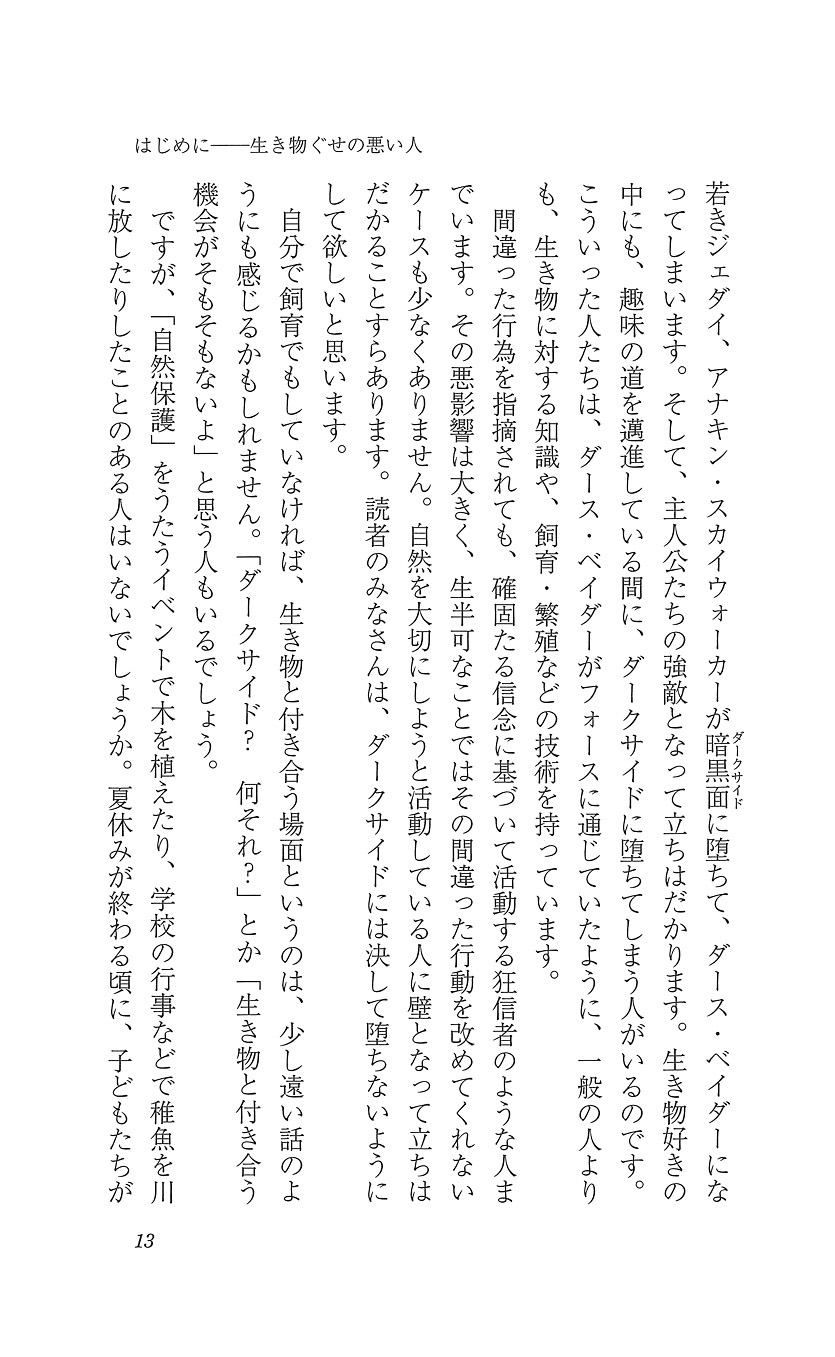 はじめに――生き物ぐせの悪い人
若きジェダイ、アナキン・スカイウォーカーが暗黒面に堕ちて、ダース・ベイダーにな
ダークサイド
ってしまいます。そして、主人公たちの強敵となって立ちはだかります。生き物好きの
中にも、趣味の道を邁進している間に、ダークサイドに堕ちてしまう人がいるのです。
こういった人たちは、ダース・ベイダーがフォースに通じていたように、一般の人より
も、生き物に対する知識や、飼育・繁殖などの技術を持っています。
間違った行為を指摘されても、確固たる信念に基づいて活動する狂信者のような人ま
でいます。その悪影響は大きく、生半可なことではその間違った行動を改めてくれない
ケースも少なくありません。自然を大切にしようと活動している人に壁となって立ちは
だかることすらあります。読者のみなさんは、ダークサイドには決して堕ちないように
して欲しいと思います。
自分で飼育でもしていなければ、生き物と付き合う場面というのは、少し遠い話のよ
うにも感じるかもしれません。「ダークサイド? 何それ?」とか「生き物と付き合う
機会がそもそもないよ」と思う人もいるでしょう。
ですが、「自然保護」をうたうイベントで木を植えたり、学校の行事などで稚魚を川
に放したりしたことのある人はいないでしょうか。夏休みが終わる頃に、子どもたちが
13